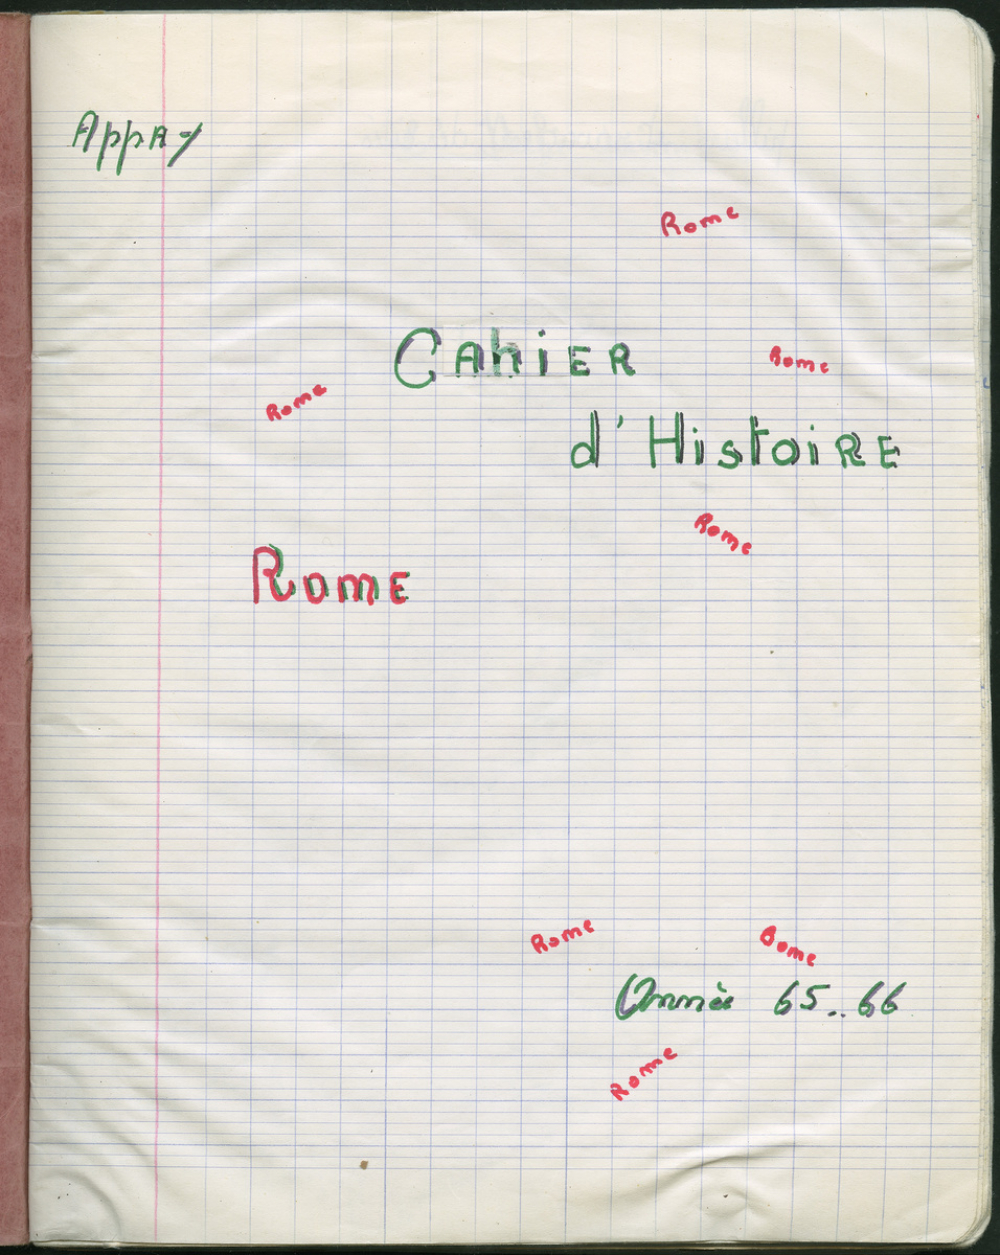 Appay
Rome
Cahier
Rome
Rome
d'Histoire
Rome
Rome
Rome
Rome
Année 65..66
Rome